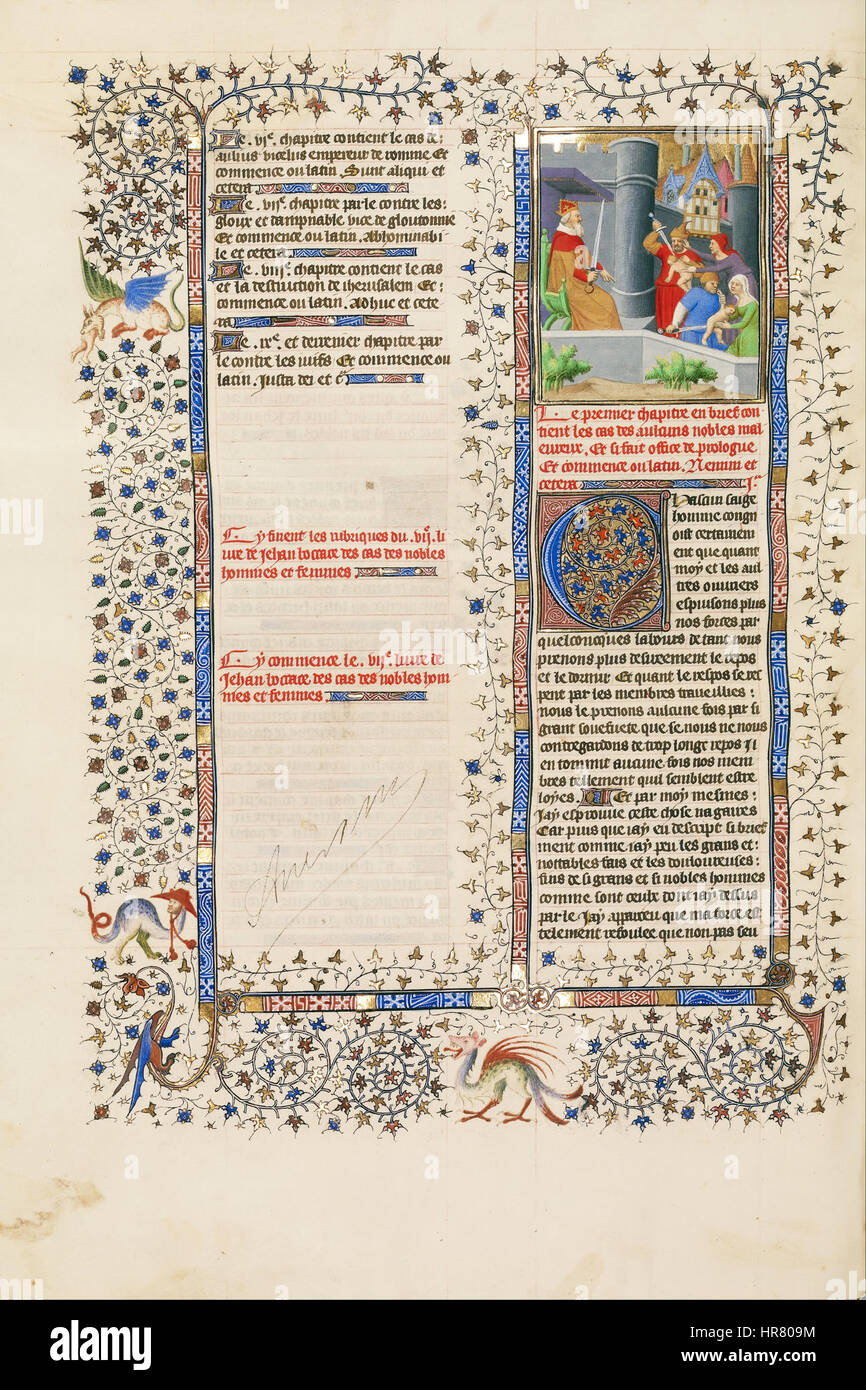 Le .vi.e chapitre contient le cas de:
aulius vitelius empereur de romme Et
commence ou latin. Sunt aliqui et
cetera
Le .vii.e chapitre parle contre les:
gloux et dampnable vice de gloutonnie
Et commence ou latin. Abhominabi
le et cetera
Le .viii.e chapitre contient le cas
et la destruction de iherusalem Et:
commence ou latin. Adhuc et cete
ra
Le .ix.e et derrenier chapitre par
le contre les iuifs Et commence ou
latin. Iusta dei et c.a
Cy finent les rubriques du .vii.e li
vre de Jehan boccace des cas des nobles
hommes et femmes
Cy commence le .vii.e livre de
Jehan boccace des cas des nobles hom
mes et femmes
Le premier chapitre en brief con
tient les cas des aulcuns nobles mal
eureux. Et si fait office de prologue.
Et commence ou latin. Nemini et
cetera
Chascun saige
homme congn
oist certainem
ent que quant
moy et les aul
tres ouvriers
espuisons plus
nos forces par
quelconcques labours de tant nous
prenons plus desirement le repos
et le dormir Et quant le respos se res
pent par les membres traveillies:
nous le prenons aulcune fois par si
grant souefuete que se nous ne nous
contregardons de trop longe repos Il
endormit aucune fois nos mem
bres tellement quil semblent estre
loyes. Et par moy mesmes:
Jay esprouve ceste chose nagaires
Car puis que jay eu descript si brief
ment comme jay peu les grans et:
nottables fais et les douloureuses:
fins de si grans et si nobles hommes
comme sont ceulx dont jay dessus
parle Jay apparceu que ma force est
tellement refoulee que non pas seu
alamy
Image ID: HR809M
www.alamy.com